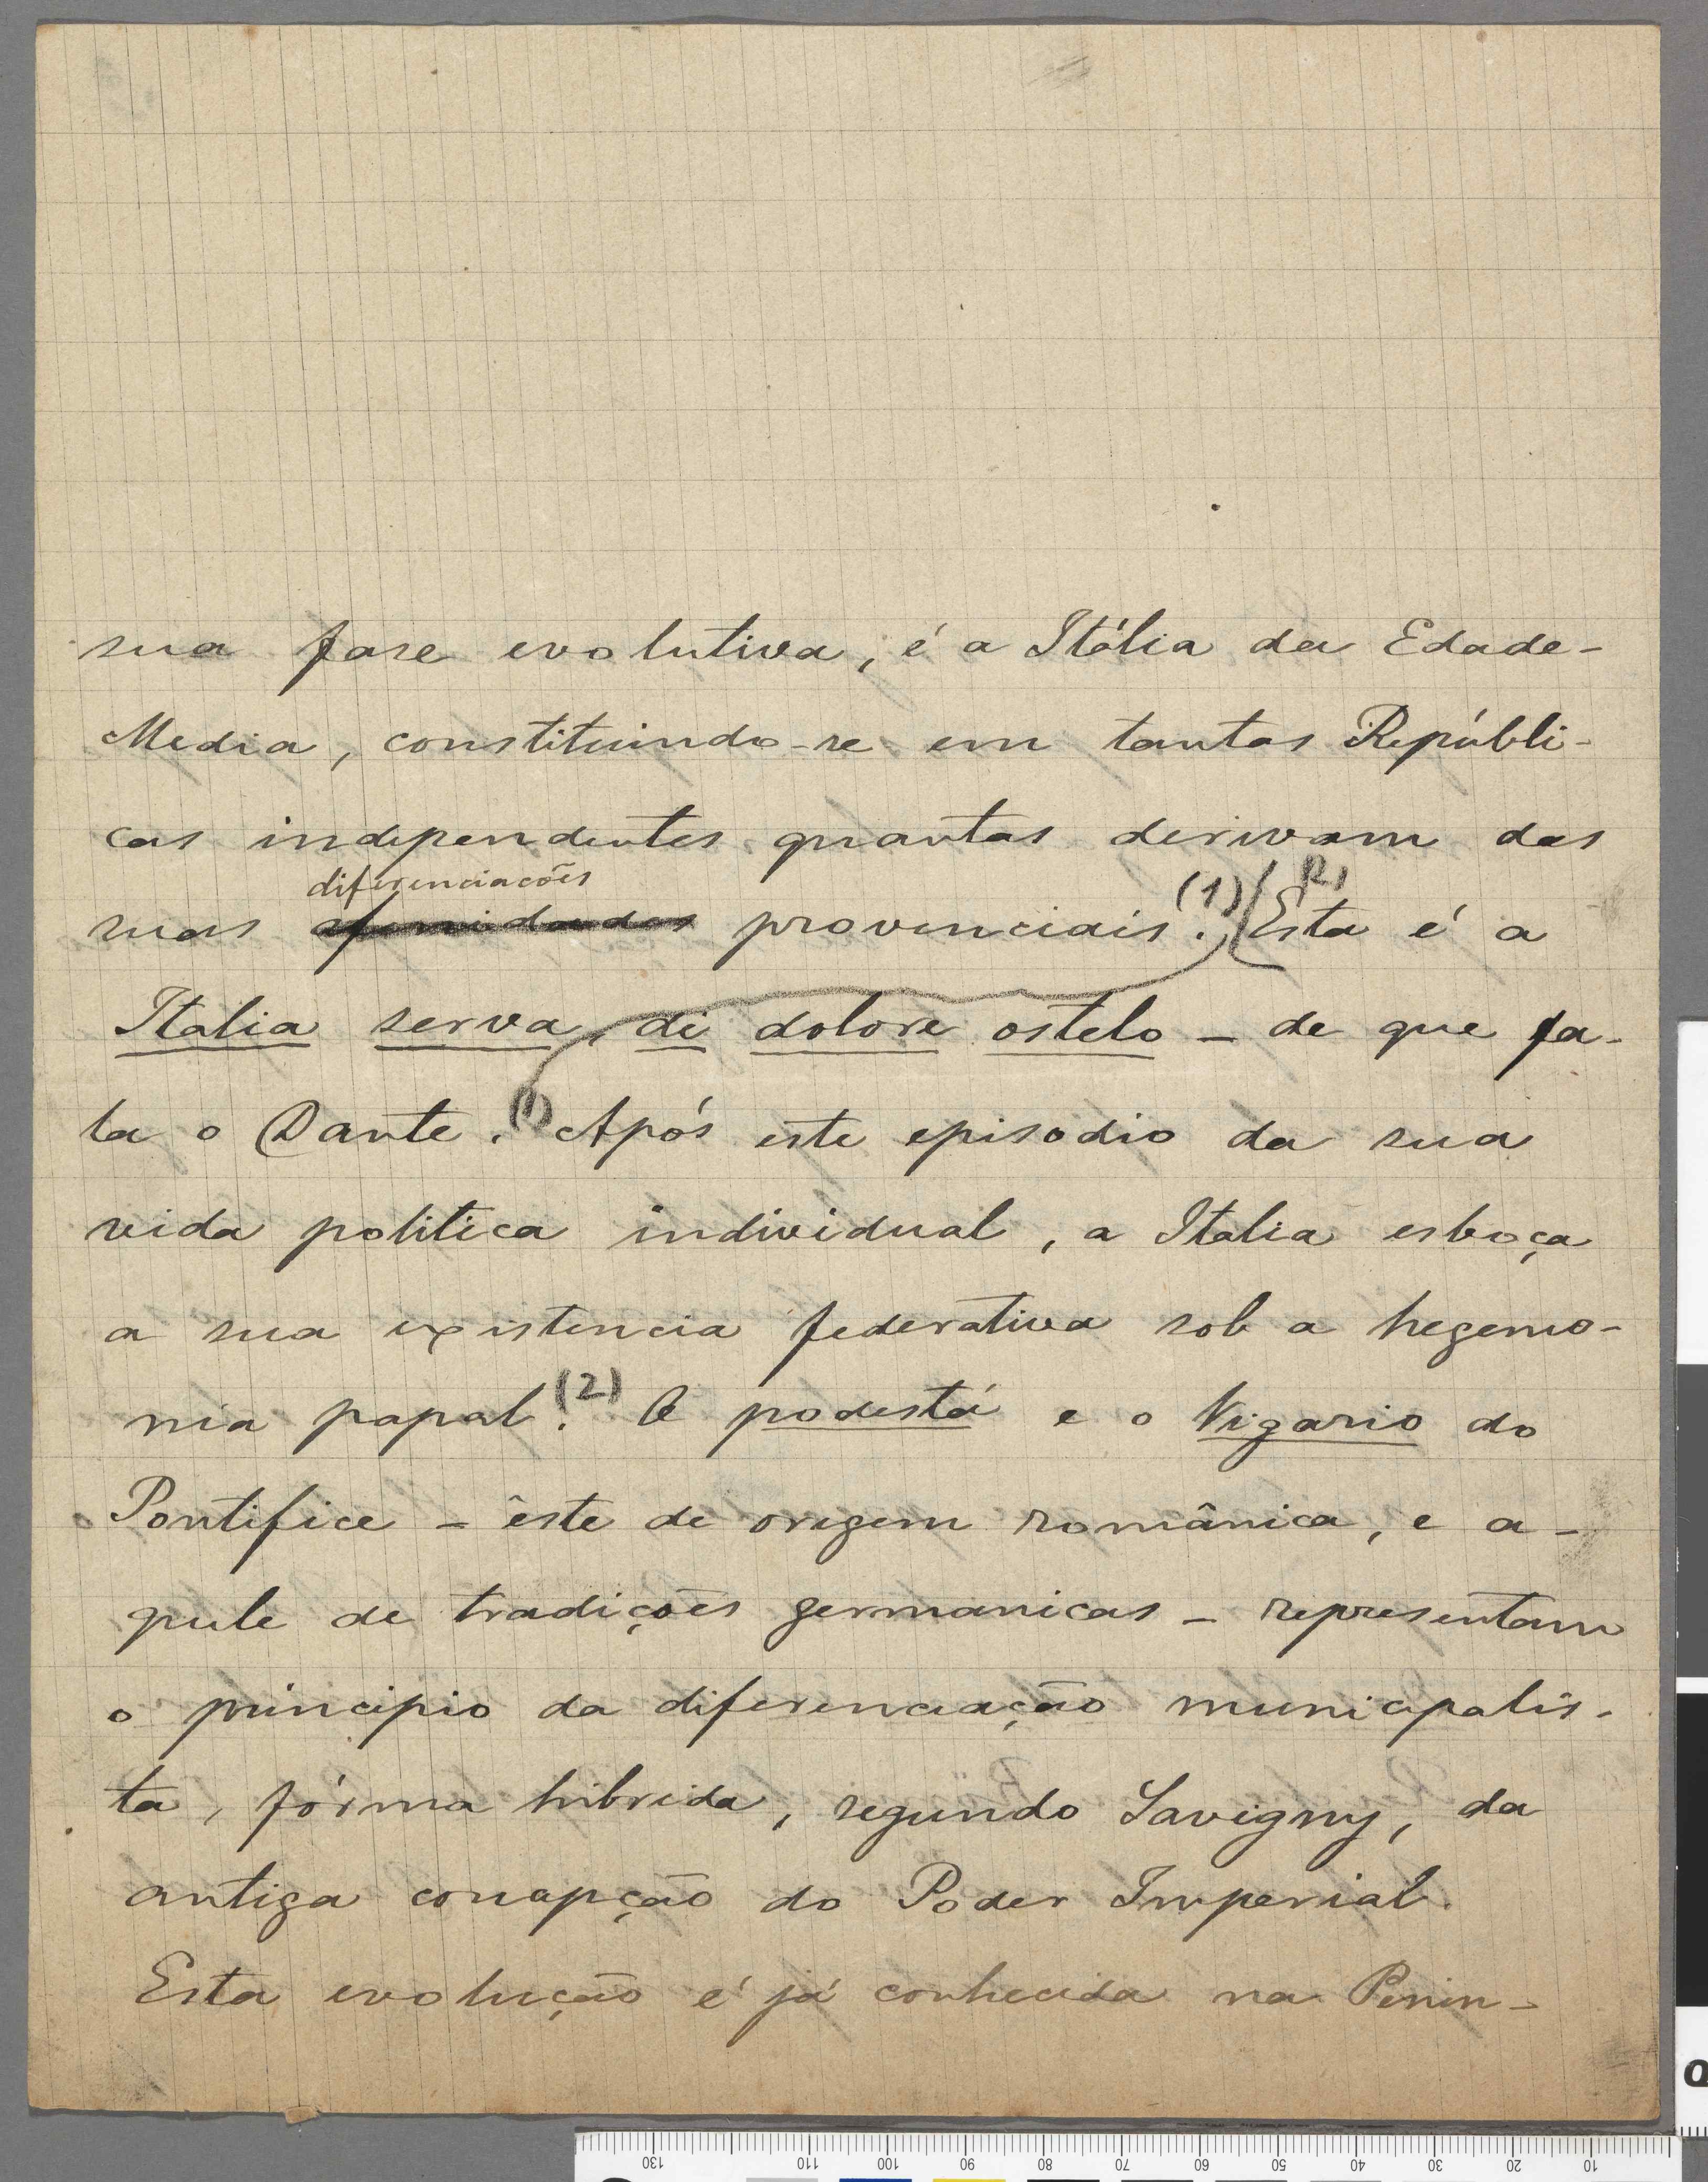 sua fase evolutiva, é a Itália da Edade-
Media, constituindo-se em tantas Repúbli-
cas independentes quantas derivam das
diferenciacões
suas afinidades provinciais. (1) Esta é a
Italia serva, di dolore ostelo - de que fa-
la o Dante. (1) Após este episodio da sua
vida politica individual, a Italia esboça
a sua existencia federativa sob a hegemo-
nia papal. (2) O podestá e o Vigario do
Pontifice - êste de origem românica, e a-
quele de tradições germanicas - representam
o principio da diferenciação municipalis-
ta, fórma hibrida, segundo Savigny, da
antiga concepção do Poder Imperial.
Esta evolução é já conhecida na Penin-
130 110 100 90 80 70 60 50 40 30 20 10